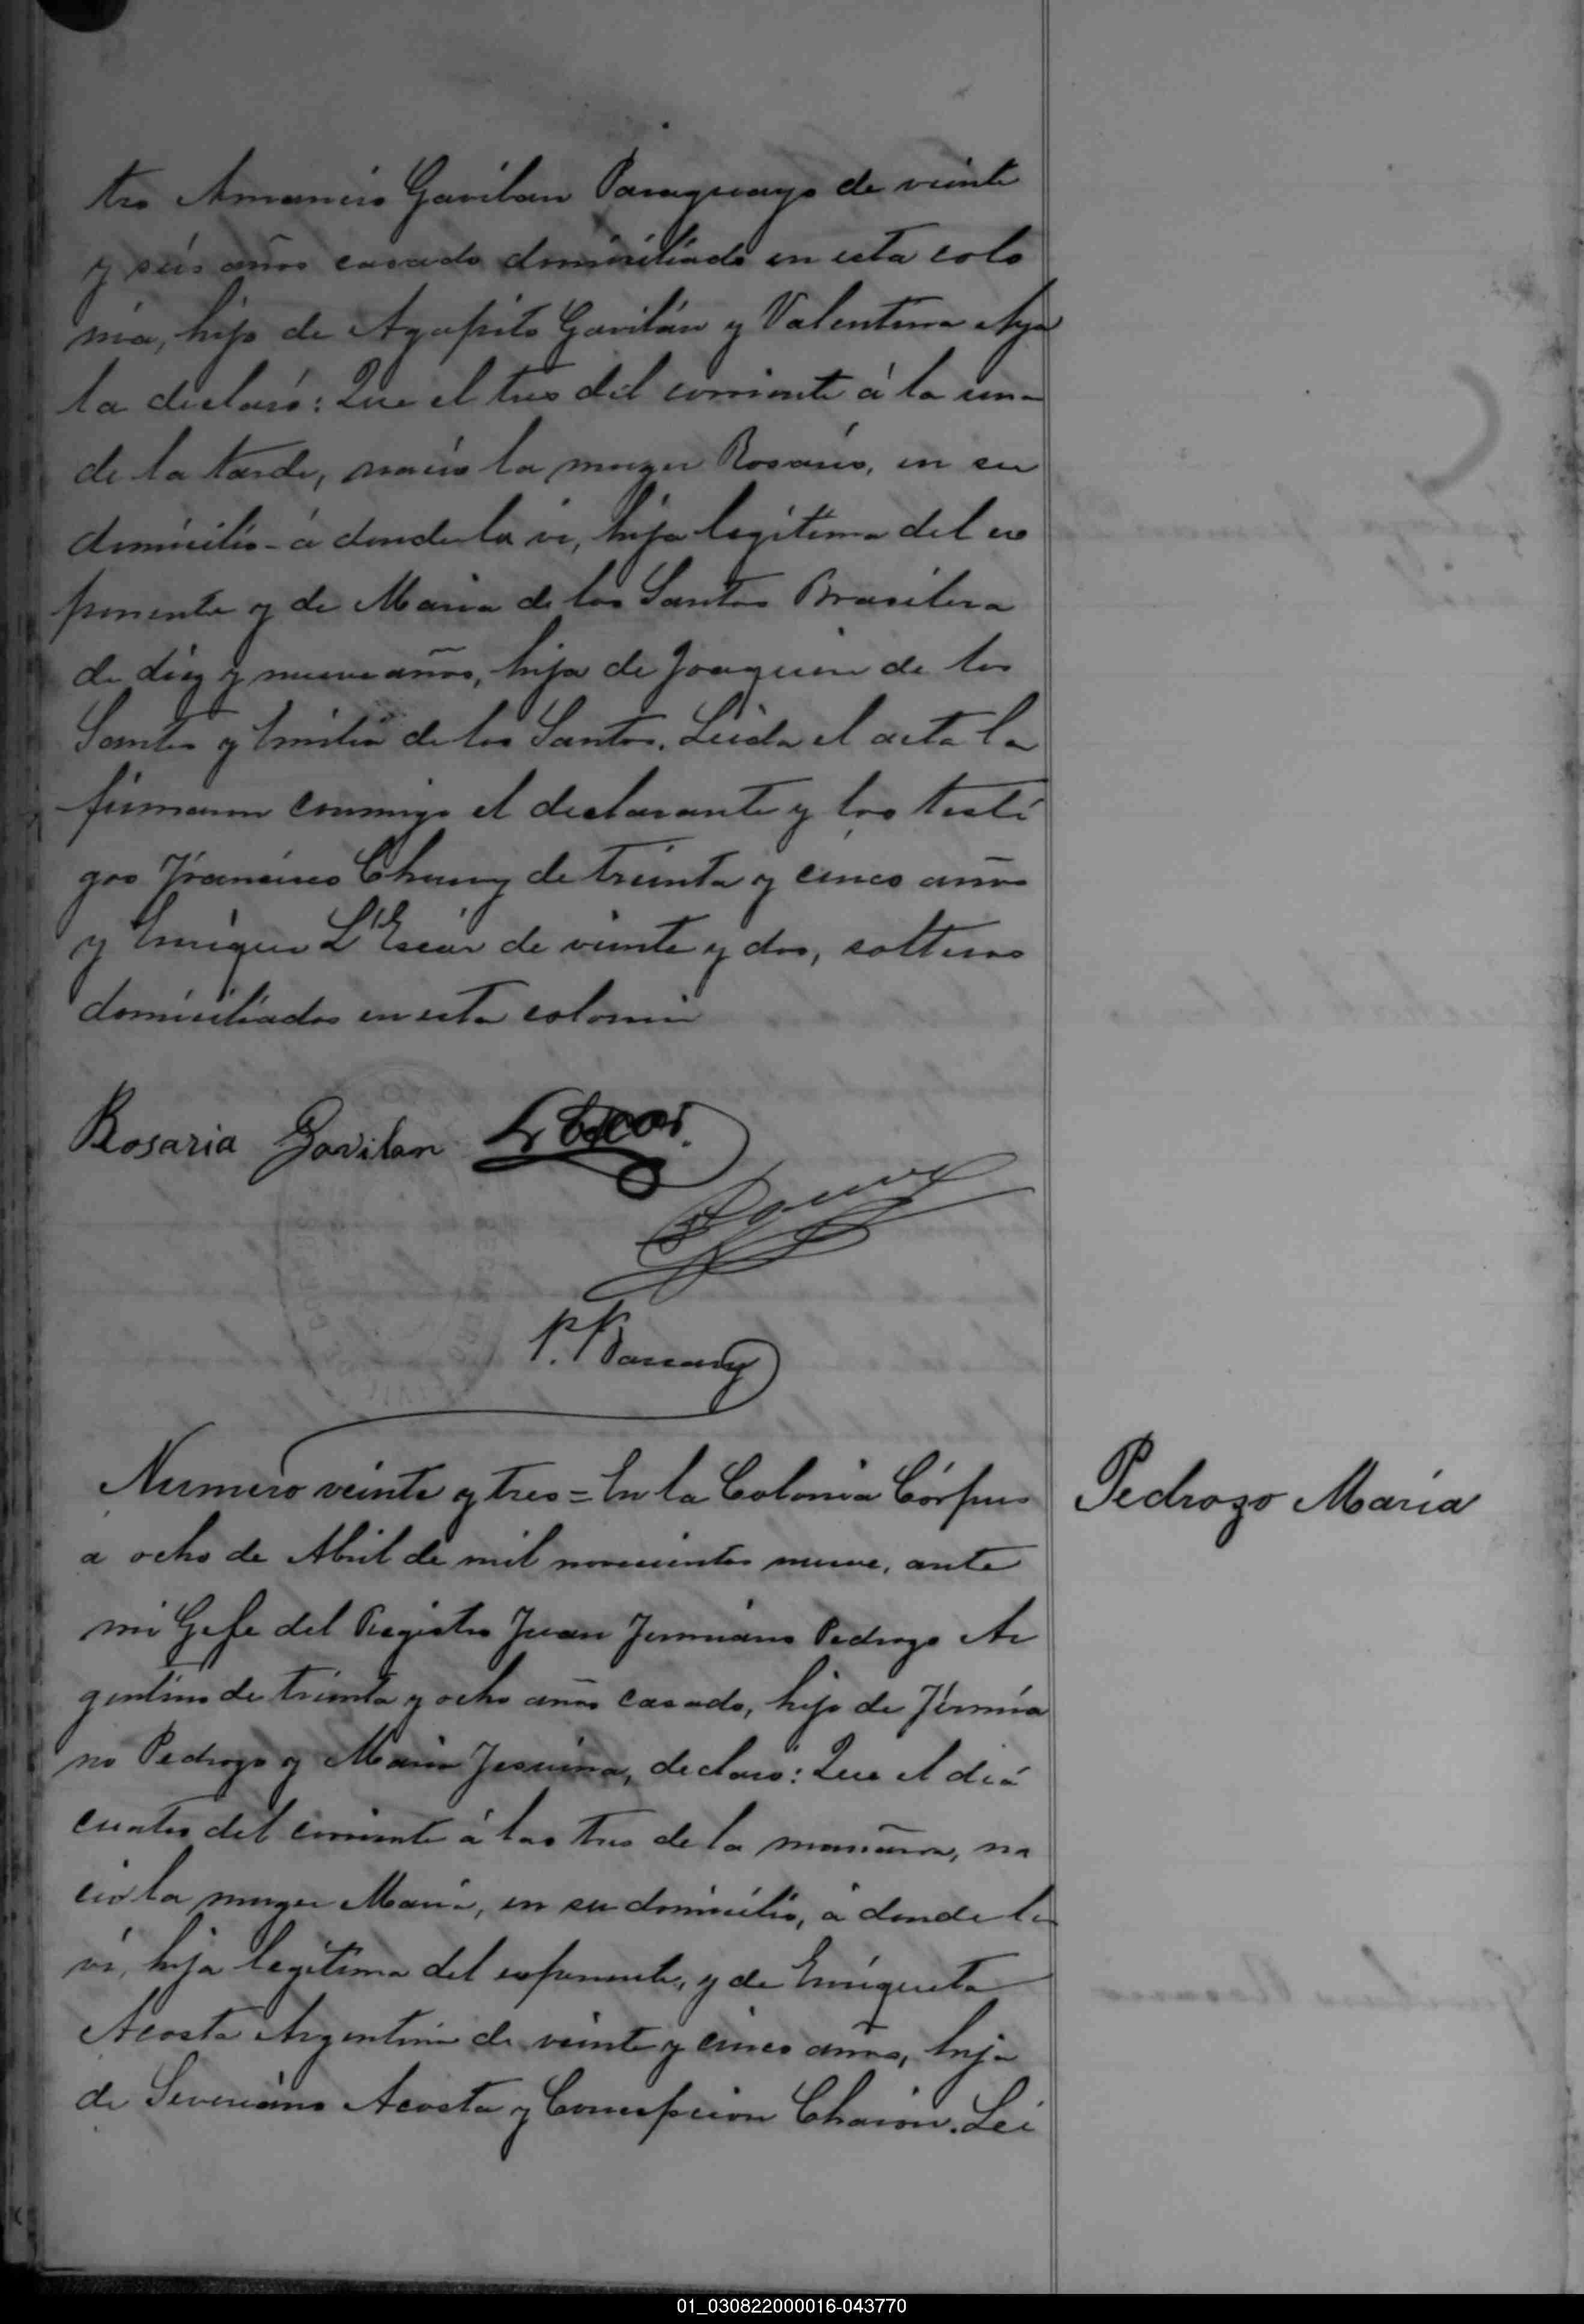 tro Amancio Gavilan Paraguayo de veinte
y seis años casado domiciliado en esta colo
nia, hijo de Agapito Gavilán y Valentina Aya
la declaró: Que el tres del corriente á la una
de la tarde, nació la muger Rosario, en su
domicilio - á donde la vi, hija legítima del es
ponente y de Maria de los Santos Brasilera
de diez y nueve años, hija de Joaquin de los
Santos y Emilia de los Santos. Leida el acta la
firmaron conmigo el declarante y los testi
gos Francisco de treinta y cinco años
y Enrique L'Escar de veinte y dos, solteros
domiciliados en esta colonia
Rosaria Gavilan
Numero veinte y tres = En la Colonia Córpus
a ocho de Abril de mil novecientos nueve, ante
mi Gefe del Registro Juan Pedrozo Ar
gentino de treinta y ocho años casado, hijo de Firmia
no Pedrozo y Maria Jesuina, declaró: Que el diá
cuatro del corriente á las tres de la mañana, na
cio la muger Maria, en su domicilio, á donde la
ví, hija legítima del esponente, y de Enriqueta
Acosta Argentina de veinte y cinco años, hija
de Severiano Acosta y Concepcion. Lei
Pedrozo Maria
01_030822000016-043770